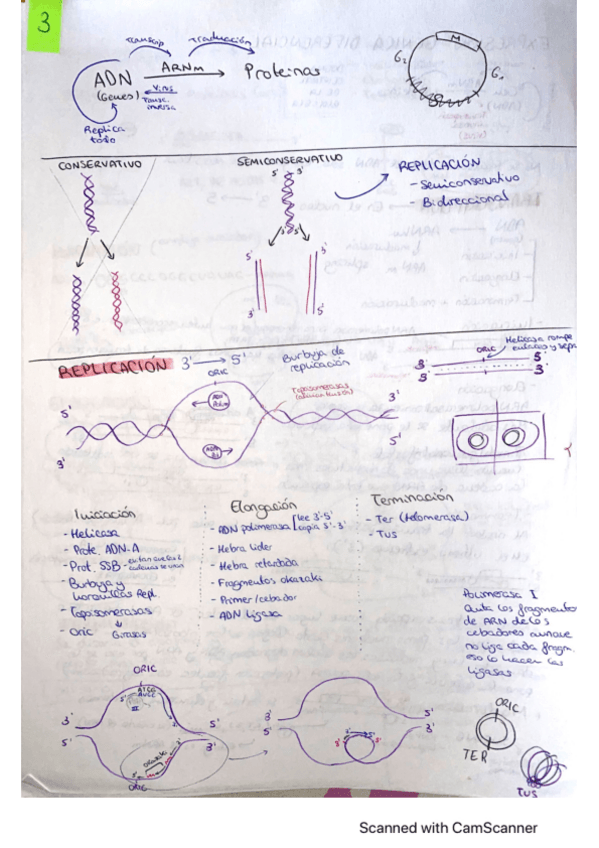 3
Transcrip
Traducción
ADN
(Genes)
ARNm
Proteinas
Virus
Transc.
inversa
Replica
todo
M
G₂
G₁
CONSERVATIVO
SEMICONSERVATIVO
5' 3'
REPLICACIÓN
- Semiconservativo
- Bidireccional
5'
5'
3'
3'
REPLICACIÓN
3' → 5'
ORIC
Burbuja de
replicación
Topoisomerasas
ORIC
Helicasa rompe
3'
5'
5'
3'
5'
3'
3'
5'
Iniciación
- Helicasa
- Prote. ADN-A
- Prot. SSB
- Burbuja y
horquillas Repl.
- Topoisomerasas
- Oric
Girasas
Elongación
- ADN polimerasa
lee 3'-5'
copia 5'-3'
- Hebra lider
- Hebra retardada
- Fragmentos okazaki
- Primer/cebador
- ADN ligasa
Terminación
- Ter (telomerasa)
- TUS
Polimerasa I
Quita los fragmentos
de ARN de los
cebadores aunque
no liga cada fragm.
eso lo hacen las
ligasas
ORIC
3'
5'
5'
3'
okazaki
ORIC
3'
5'
5'
3'
ORIC
TER
TUS
Scanned with CamScanner